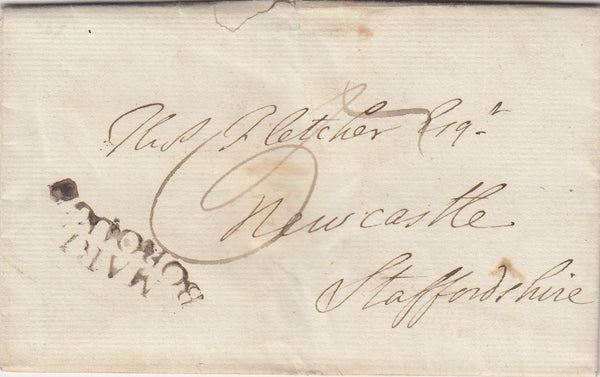 Thos Fletcher Esqr
Newcastle
Staffordshire
MARL
BOROUG